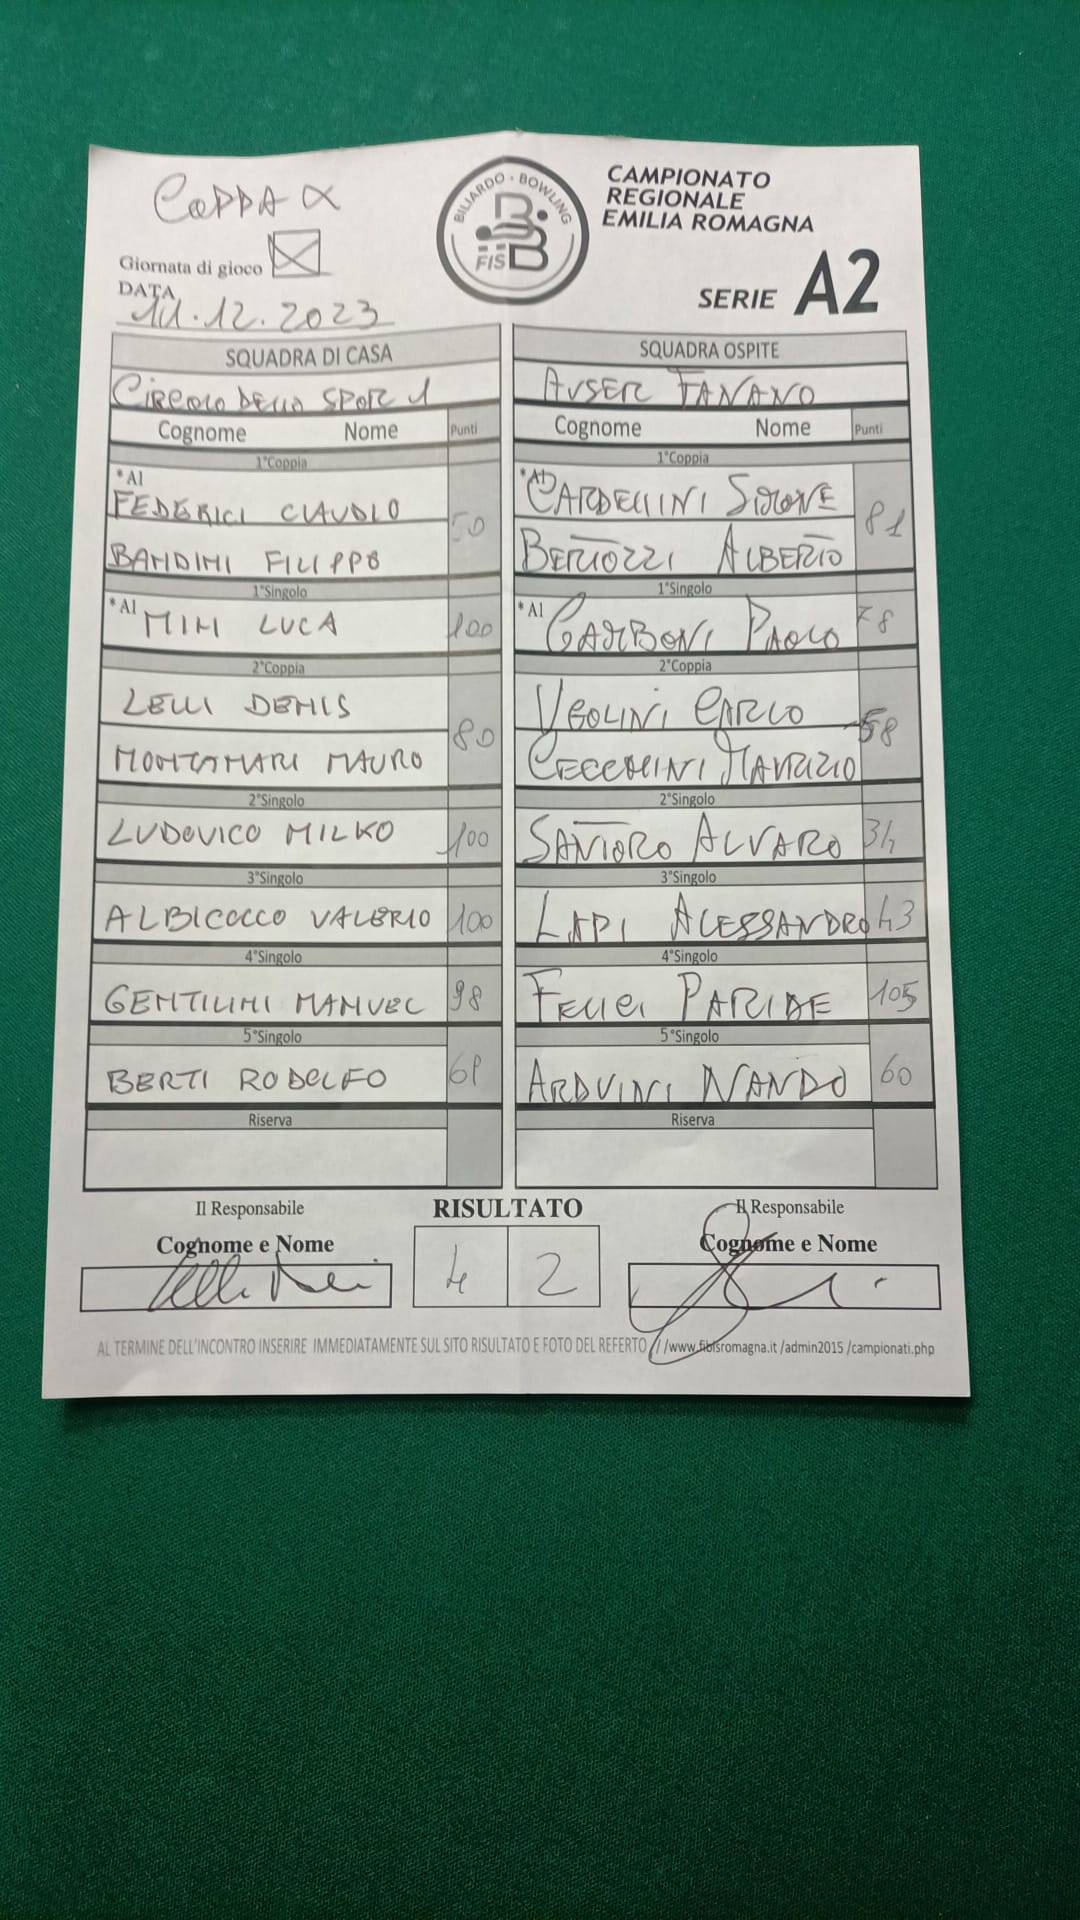 COPPA
BILIARDO · BOWLING
FISBB
CAMPIONATO
REGIONALE
EMILIA ROMAGNA
Giornata di gioco X
SERIE A2
DATA
11.12.2023
SQUADRA DI CASA SQUADRA OSPITE
CIRCOLO DELLO SPOR 1 AUSER FANANO
Cognome Nome Punti Cognome Nome Punti
1°Coppia 1°Coppia
*A1 FEDERICI CLAUDIO 50 *A1 CARDELLINI SIMONE 81
BANDINI FILIPPO BERTOZZI ALBERTO
1°Singolo 1°Singolo
*A1 MINI LUCA 100 *A1 GARBONI PAOLO 78
2°Coppia 2°Coppia
LELLI DENIS 80 UGOLINI CARLO 58
MONTANARI MAURO CECCHINI MAURIZIO
2°Singolo 2°Singolo
LUDOVICO MILKO 100 SANTORO ALVARO 34
3°Singolo 3°Singolo
ALBICOCCO VALERIO 100 LAPI ALESSANDRO 43
4°Singolo 4°Singolo
GENTILINI MANUEL 98 FELLICI PARIDE 105
5°Singolo 5°Singolo
BERTI RODOLFO ARDUINI NANDO 60
Riserva Riserva
Il Responsabile RISULTATO Il Responsabile
Cognome e Nome 4 2 Cognome e Nome
AL TERMINE DELL'INCONTRO INSERIRE IMMEDIATAMENTE SUL SITO RISULTATO E FOTO DEL REFERTO //www.fibisromagna.it /admin2015 /campionati.php